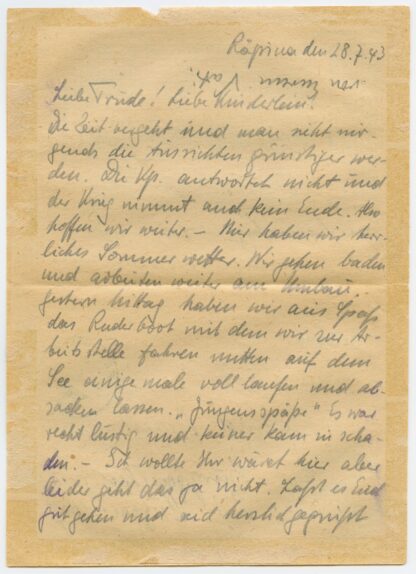 Räpina den 28.7.43
Liebe Trude! Liebe Kinderlein!
Die Zeit vergeht und man sieht nir-
gends die Aussichten günstiger wer-
den. Die Kp. antwortet nicht und
der Krieg nimmt auch kein Ende. Also
hoffen wir weiter. – Hier haben wir herr-
liches Sommerwetter. Wir gehen baden
und arbeiten weiter am Umbau.
gestern Mittag haben wir aus Spaß
das Ruderboot mit dem wir zur Ar-
beitsstelle fahren mitten auf dem
See einige male voll laufen und ab-
sacken lassen. „Jungensspäße" Es war
recht lustig und keiner kam in scha-
den. – Ich wollte Ihr wäret hier aber
leider geht das ja nicht. Laßt es Euch
gut gehen und seid herzlich gegrüßt